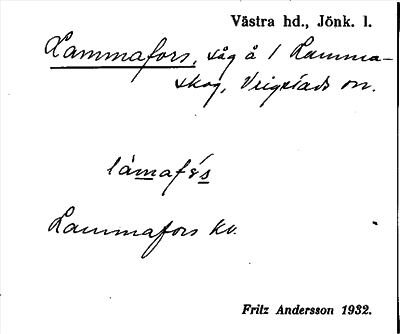 Västra hd., Jönk. l.
Lammafors, såg å 1 Lamma-
skog, Vrigstads sn.
Lammafors kv.
Fritz Andersson 1932.